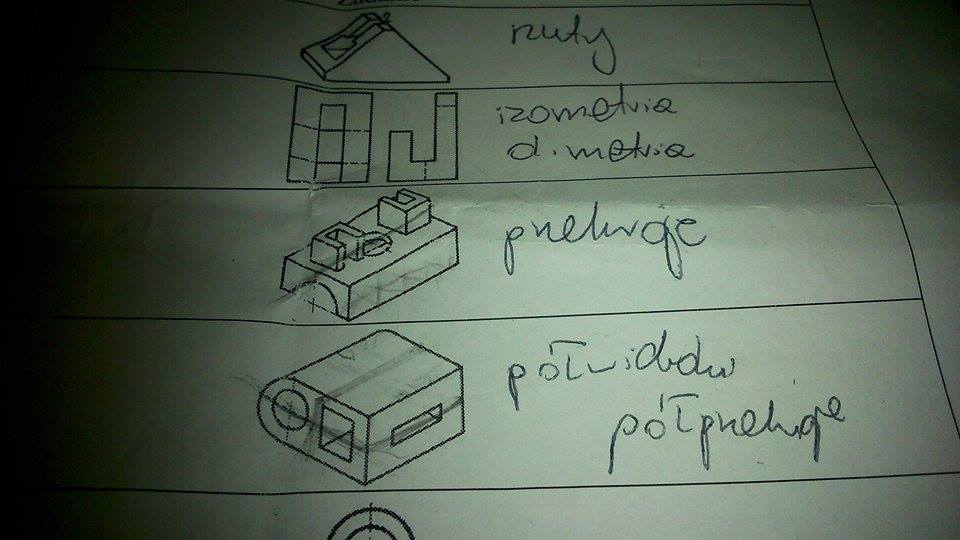 rzuty
izometria
dimetria
przekroje
półwidoków
półprzekroje